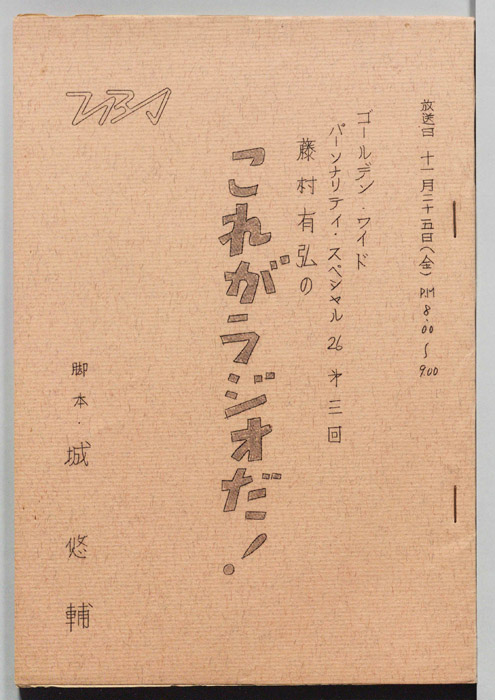 放送日 十一月二十五日(金) PM 8.00〜9.00
ゴールデン・ワイド
パーソナリティ・スペシャル26 才三回
藤村有弘の
これがラジオだ!
TBS
脚本・城 悠輔